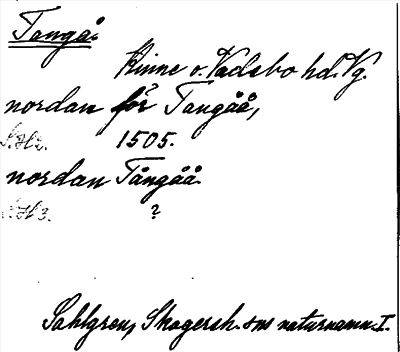 Tangå.
Kinne o. Vadsbo hd. Vg.
nordan för Tangåå,
S.H2. 1505.
nordan Tångåå.
S.H3. ?
Sahlgren, Skagersh. sns naturnamn I.